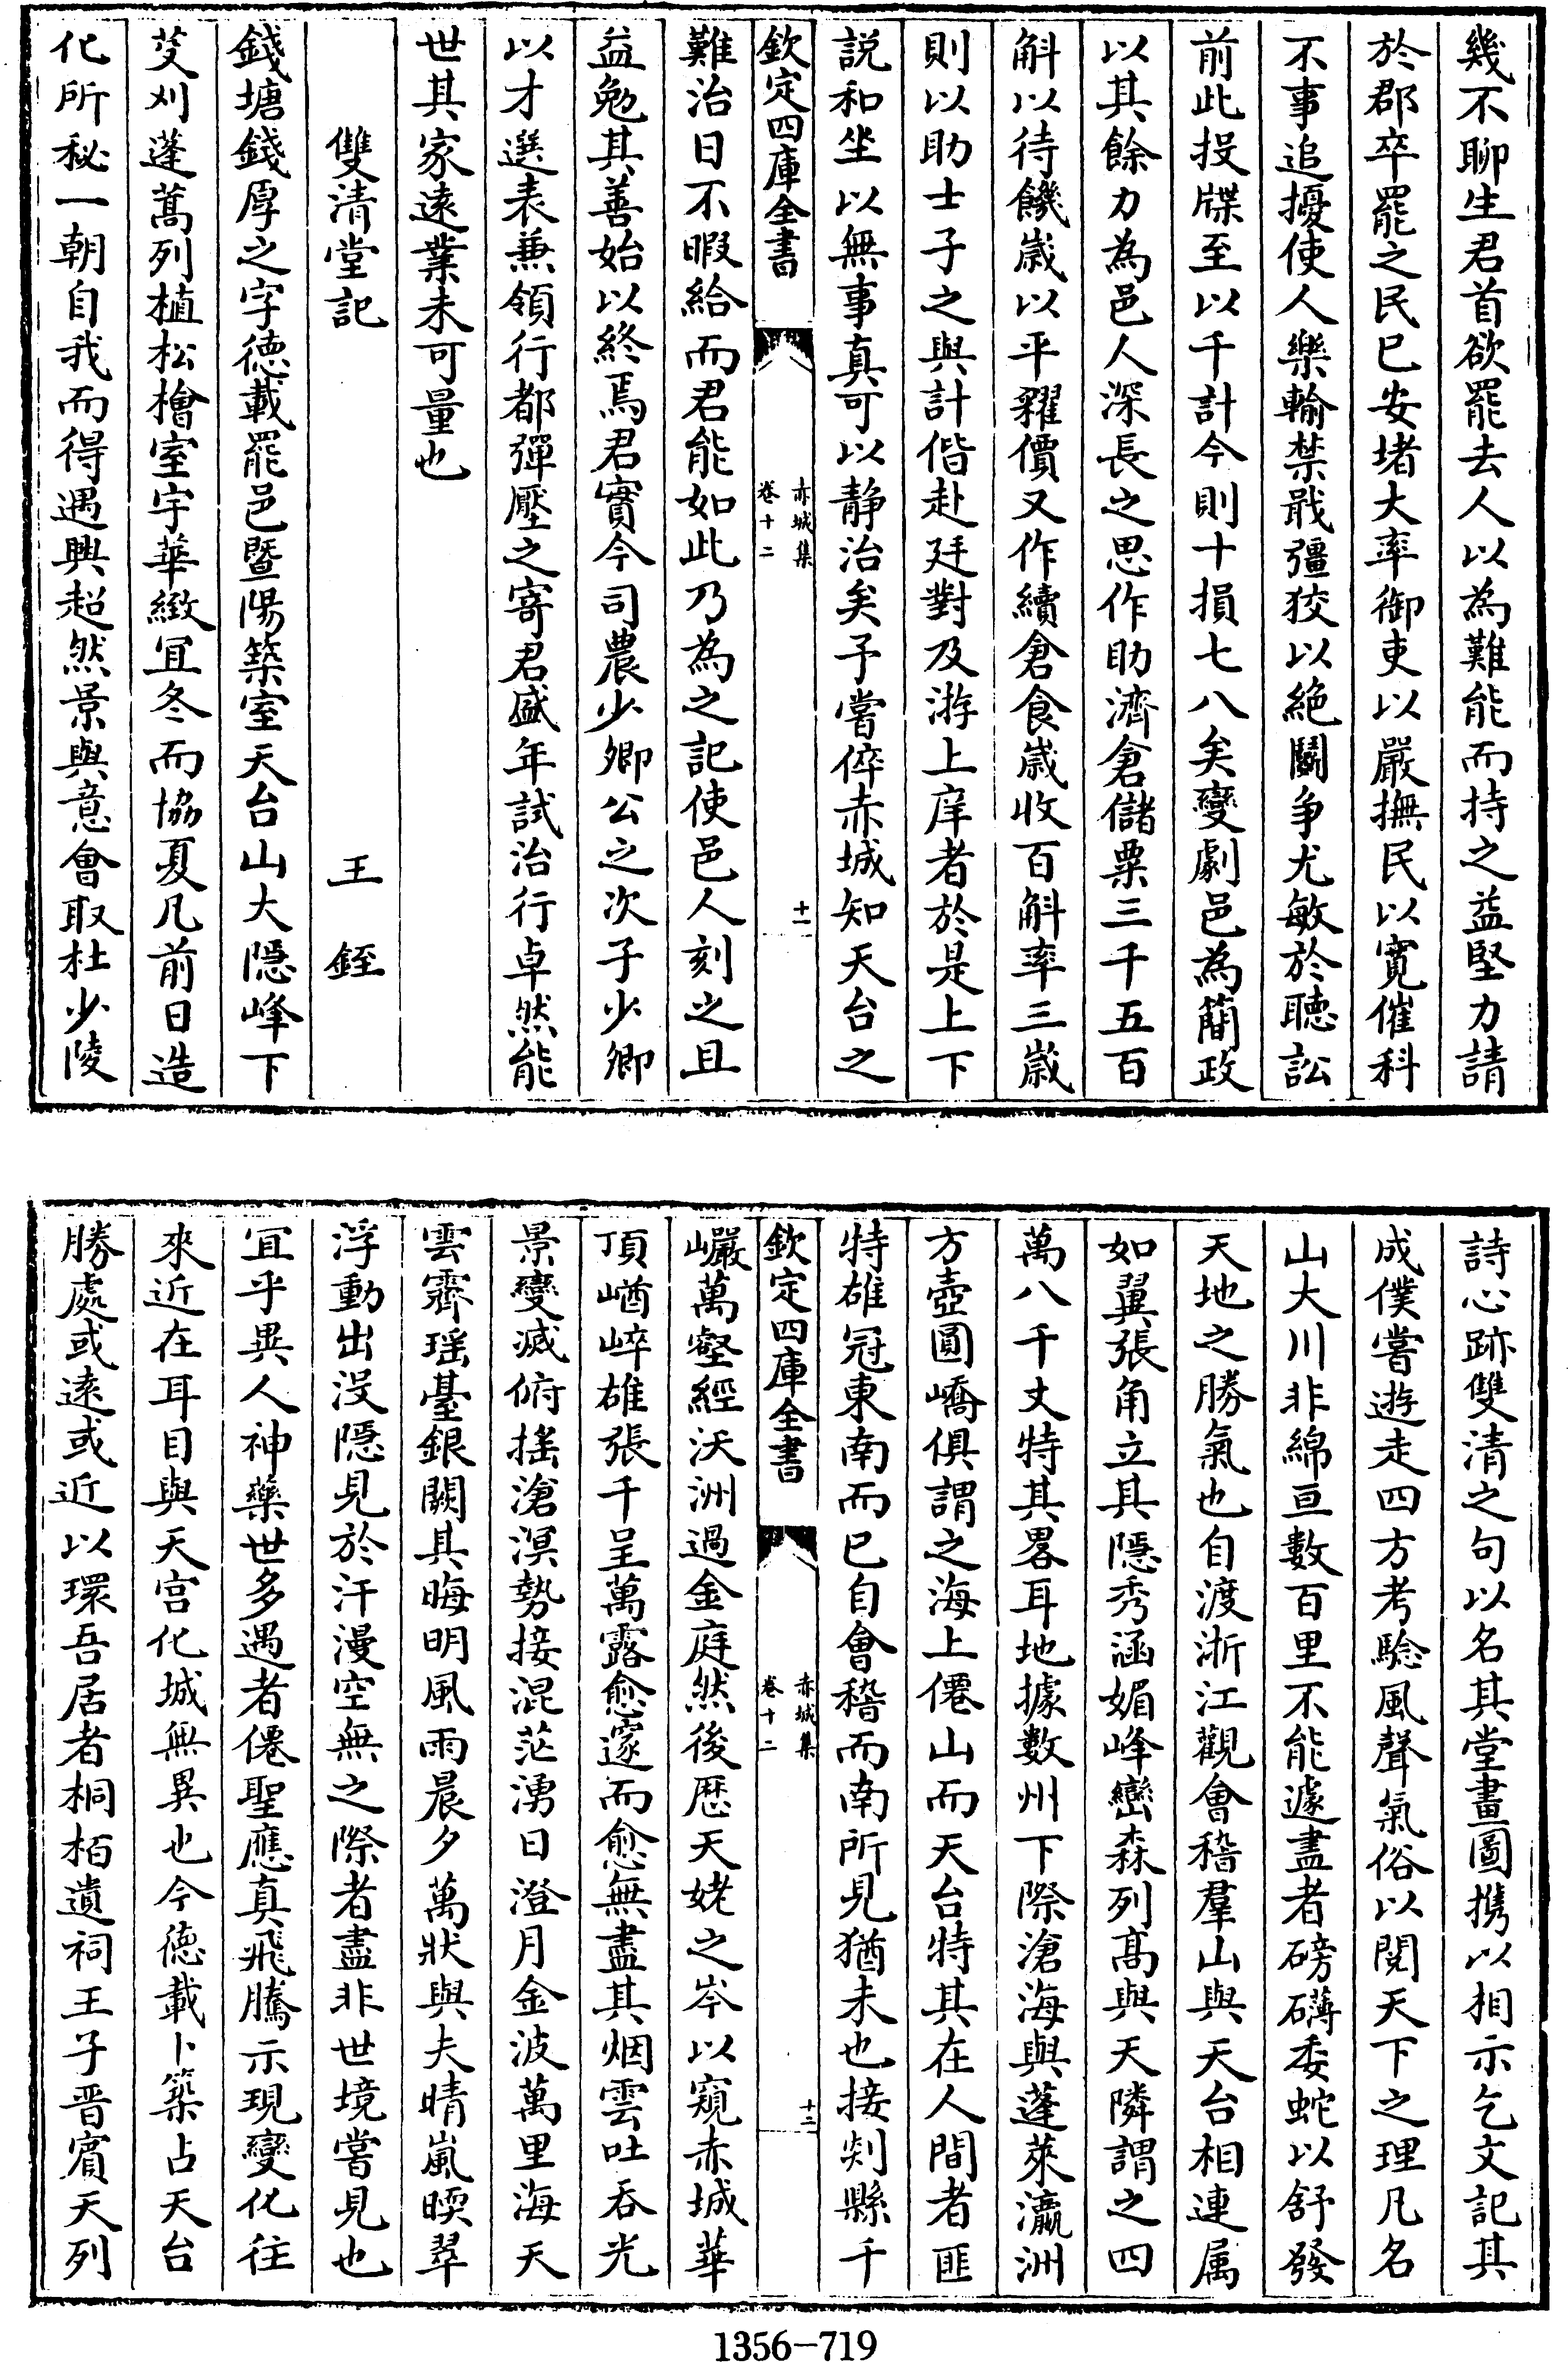 幾不聊生君首欲罷去人以為難能而持之益堅力請
於郡卒罷之民已安堵大率御吏以嚴撫民以寛催科
不事追擾使人樂輸禁戢彊狡以絶鬭争尤敏於聽訟
前此投牒至以千計今則十損七八矣變劇邑為簡政
以其餘力為邑人深長之思作助濟倉儲粟三千五百
斛以待饑歲以平糴價又作續倉食歲收百斛率三歲
則以助士子之與計偕赴廷對及游上庠者於是上下
説和坐以無事真可以静治矣予嘗倅赤城知天台之
欽定四庫全書
赤城集
卷十二
十一
難治日不暇給而君能如此乃為之記使邑人刻之且
益勉其善始以終焉君實今司農少卿公之次子少卿
以才選表兼領行都彈壓之寄君盛年試治行卓然能
世其家遠業未可量也
雙清堂記 王銍
錢塘錢厚之字徳載罷邑暨陽築室天台山大隱峰下
芟刈蓬蒿列植松檜室宇華緻宜冬而協夏凡前日造
化所秘一朝自我而得遇興超然景與意會取杜少陵
詩心跡雙清之句以名其堂畫圖攜以相示乞文記其
成僕嘗遊走四方考驗風聲氣俗以閲天下之理凡名
山大川非綿亘數百里不能遽盡者磅礴委蛇以舒發
天地之勝氣也自渡浙江觀會稽羣山與天台相連属
如翼張角立其隱秀涵媚峰巒森列髙與天隣謂之四
萬八千丈特其畧耳地據數州下際滄海與蓬萊瀛洲
方壺圓嶠俱謂之海上僊山而天台特其在人間者匪
特雄冠東南而已自會稽而南所見猶未也接剡縣千
欽定四庫全書
赤城集
卷十二
十二
巘萬壑經沃洲過金庭然後歴天姥之岑以窺赤城華
頂崷崒雄張千呈萬露愈邃而愈無盡其烟雲吐吞光
景變滅俯搖滄溟勢接混茫湧日澄月金波萬里海天
雲霽瑶臺銀闕其晦明風雨晨夕萬狀與夫晴嵐暎翠
浮動出没隱見於汗漫空無之際者盡非世境嘗見也
宜乎異人神藥世多遇者僊聖應真飛騰示現變化往
來近在耳目與天宫化城無異也今徳載卜築占天台
勝處或逺或近以環吾居者桐栢遺祠王子晋賔天列
1356-719